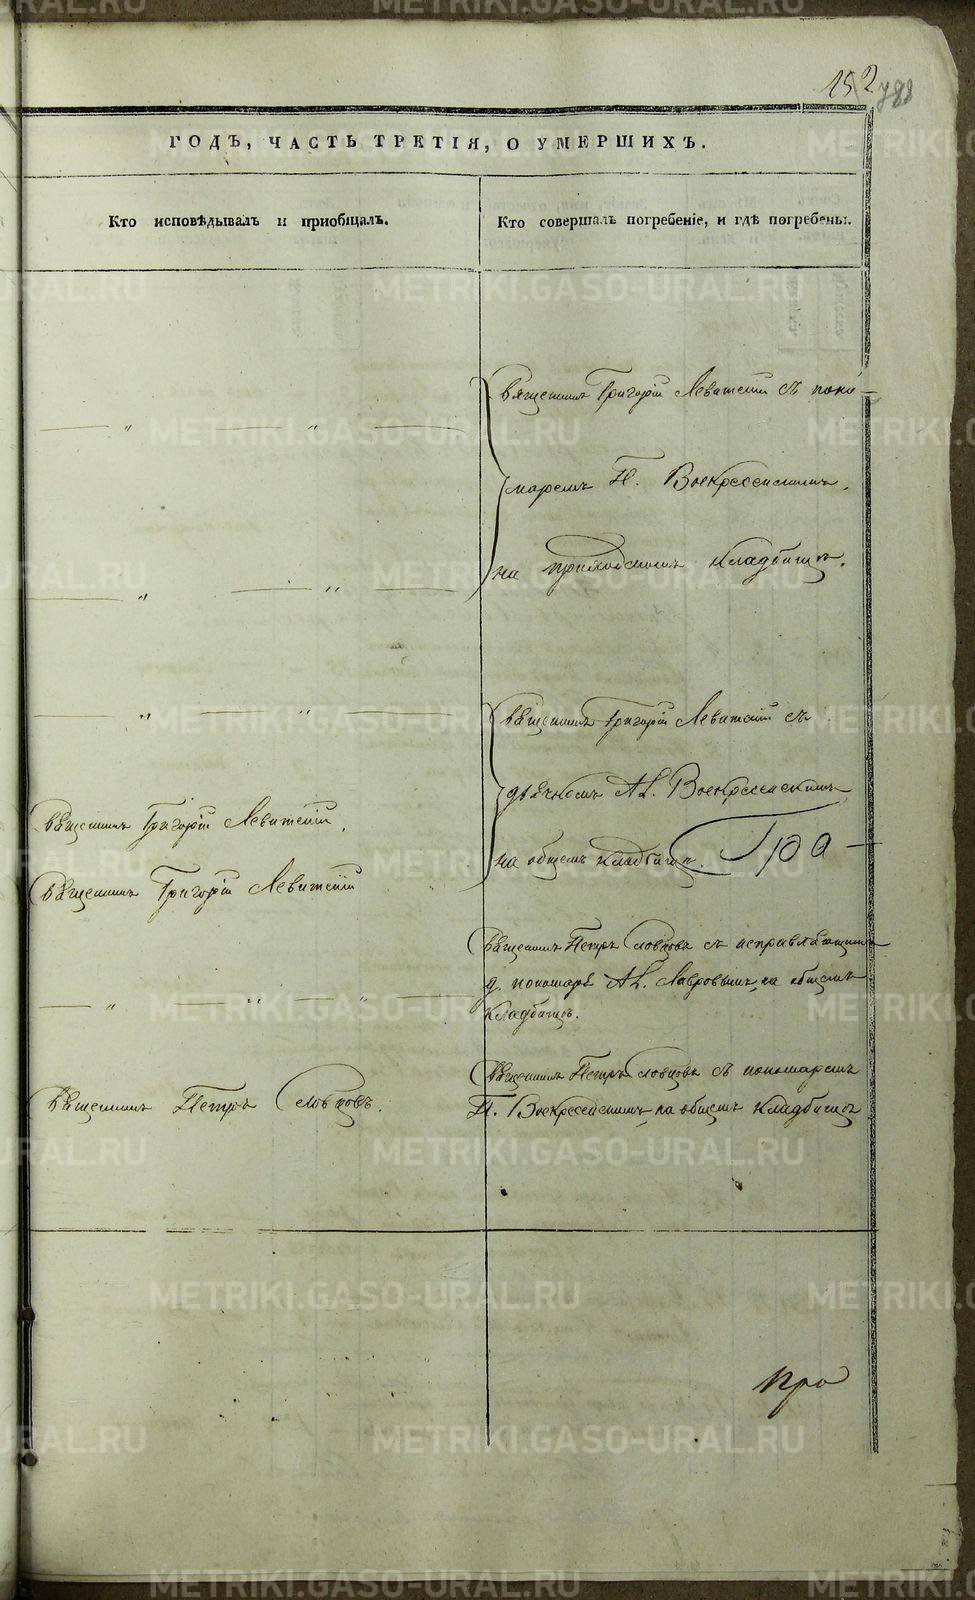 152
788
ГОДЪ, ЧАСТЬ ТРЕТІЯ, О УМЕРШИХЪ.
Кто исповѣдывалъ и пріобщалъ.
Кто совершалъ погребеніе, и гдѣ погребены.
Священникъ Григорій Левитскій съ поно-
— „ — „ —
маремъ П. Воскресенскимъ,
на приходскомъ кладбищѣ.
— „ — „ —
— „ — „ —
Священникъ Григорій Левитскій съ
дьячкомъ Ал. Воскресенскимъ
Священникъ Григорій Левитскій.
на общемъ кладбищѣ.
Священникъ Григорій Левитскій
Священникъ Петръ Словцовъ съ исправляющимъ
д. пономаря Ал. Лавровымъ, на общемъ
— „ — „ — „ —
кладбищѣ.
Священникъ Петръ Словцовъ съ пономаремъ
Священникъ Петръ Словцовъ.
П. Воскресенскимъ, на общемъ кладбищѣ
про
METRIKI.GASO-URAL.RU